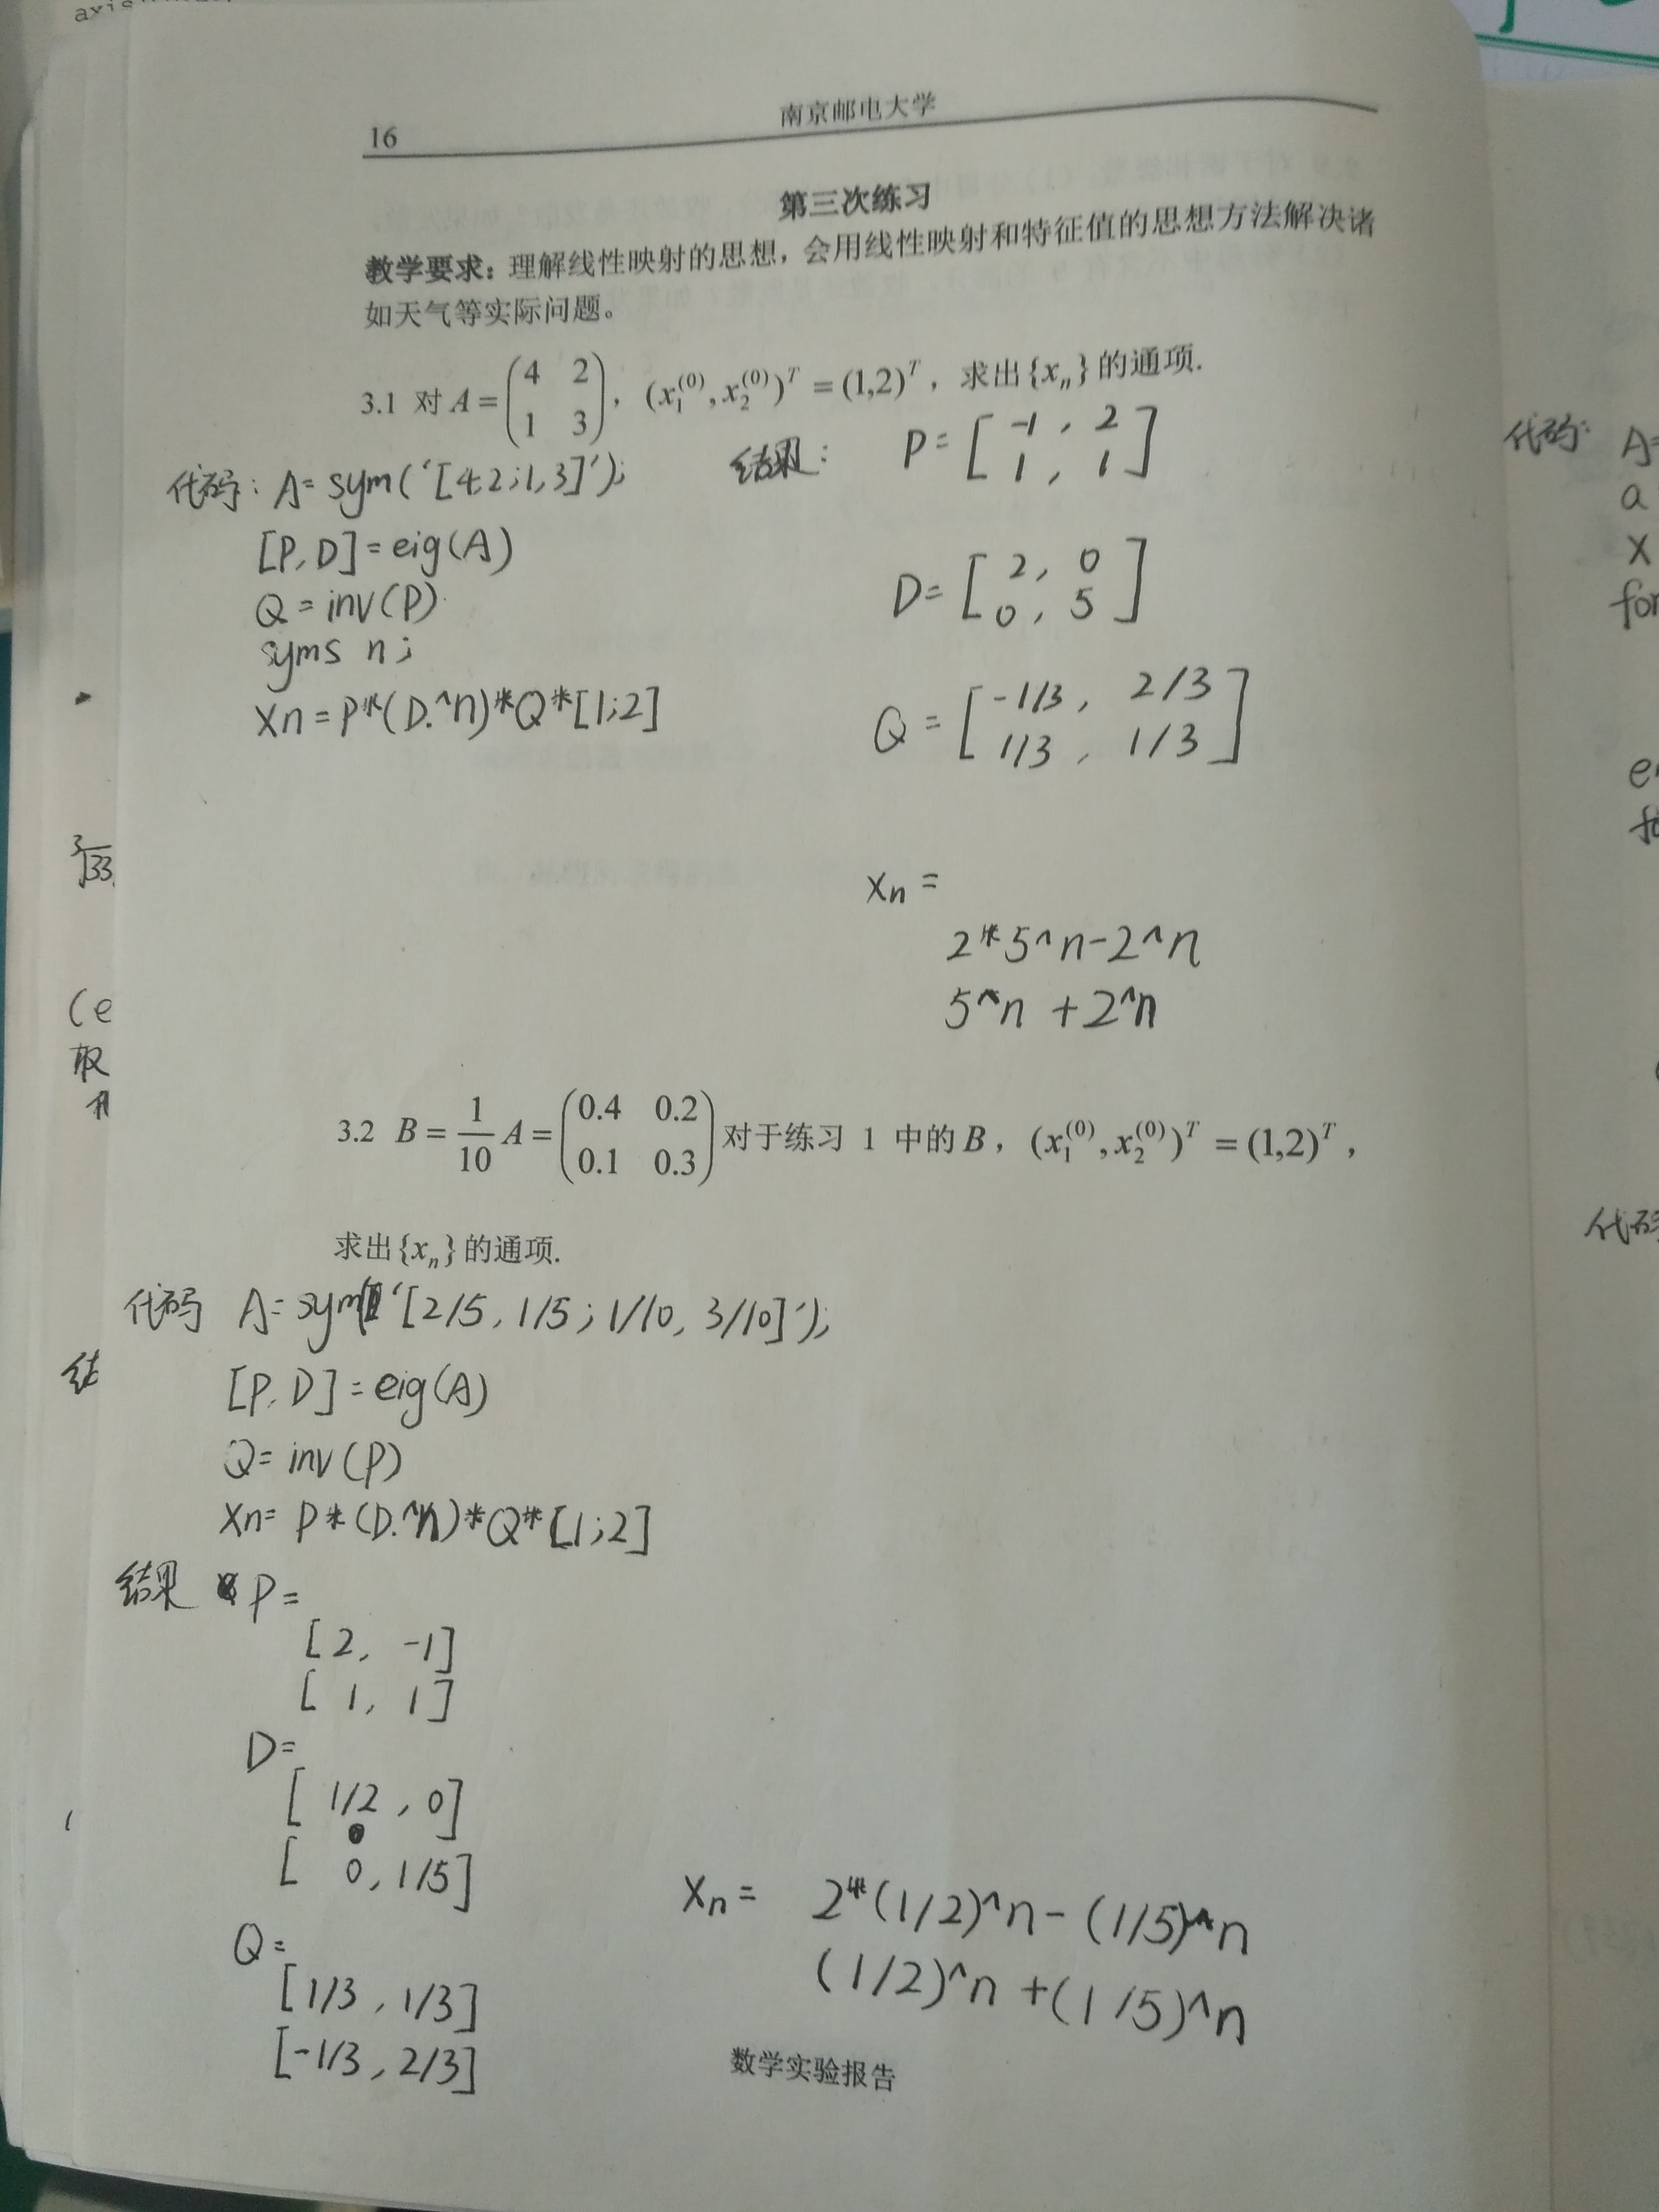 16 南京邮电大学
第三次练习
教学要求：理解线性映射的思想，会用线性映射和特征值的思想方法解决诸
如天气等实际问题。
3.1 对 A = (4 2; 1 3), (x₁⁽⁰⁾, x₂⁽⁰⁾)ᵀ = (1,2)ᵀ，求出{xₙ}的通项.
代码: A= sym('[4,2;1,3]');
[P,D]=eig(A)
Q = inv(P)
syms n;
Xn=P*(D.^n)*Q*[1;2]
结果:
P= [-1, 2
1, 1]
D= [2, 0
0, 5]
Q = [-1/3, 2/3
1/3, 1/3]
Xn =
2*5^n-2^n
5^n +2^n
3.2 B = 1/10 A = (0.4 0.2; 0.1 0.3) 对于练习 1 中的B，(x₁⁽⁰⁾, x₂⁽⁰⁾)ᵀ = (1,2)ᵀ，
求出{xₙ}的通项.
代码 A= sym('[2/5, 1/5; 1/10, 3/10]');
[P,D]=eig(A)
Q= inv(P)
Xn= P*(D.^n)*Q*[1;2]
结果 P=
[2, -1]
[1, 1]
D=
[1/2, 0]
[0, 1/5]
Q=
[1/3, 1/3]
[-1/3, 2/3]
Xn= 2*(1/2)^n-(1/5)^n
(1/2)^n+(1/5)^n
数学实验报告
代码: A=
a
X
for
代码
结
(e
取
³√33